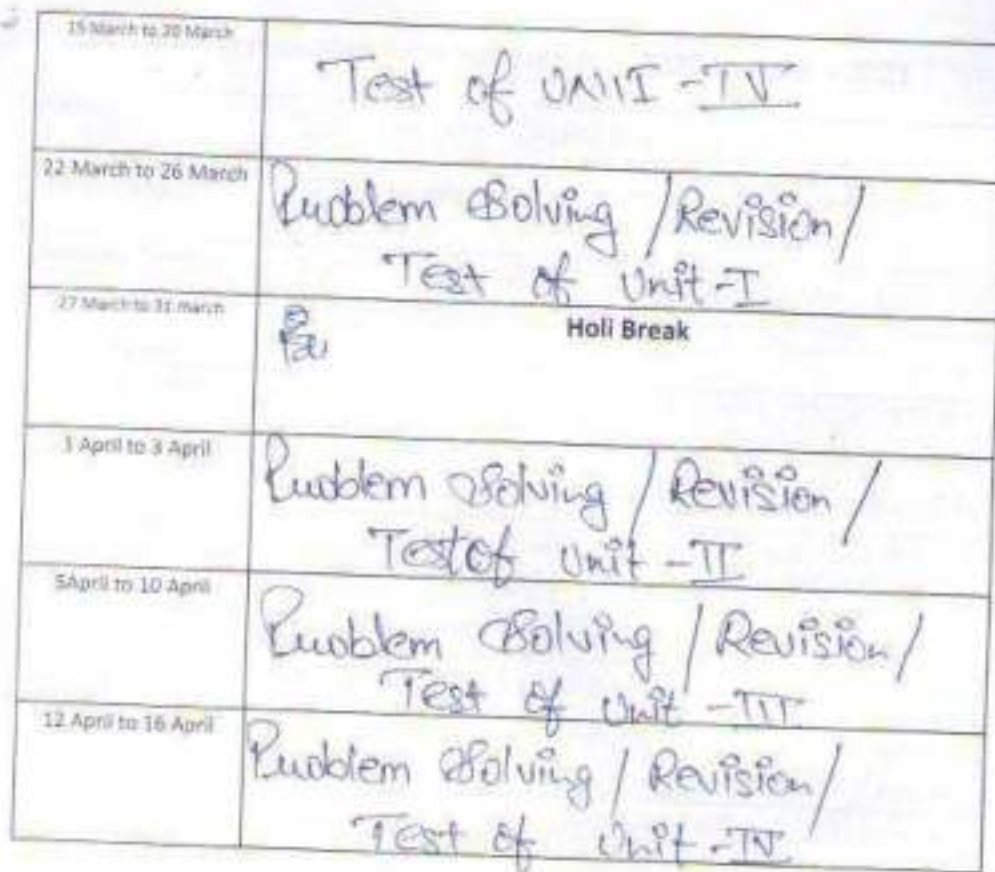 15 March to 20 March
Test of UNIT-IV
22 March to 26 March
Problem Solving / Revision /
Test of Unit-I
27 March to 31 march
Holi Break
1 April to 3 April
Problem Solving / Revision /
Test of Unit-II
5April to 10 April
Problem Solving / Revision /
Test of Unit-III
12 April to 16 April
Problem Solving / Revision /
Test of Unit-IV